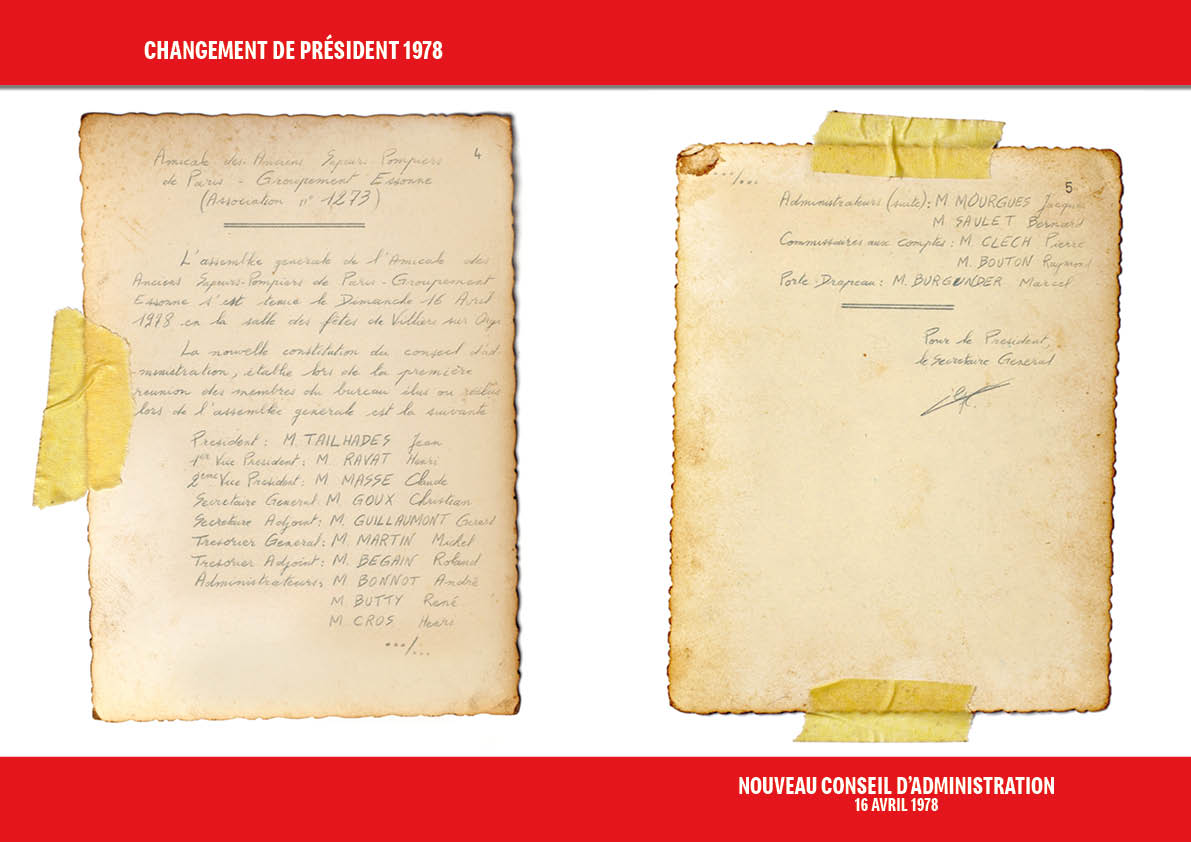 CHANGEMENT DE PRÉSIDENT 1978
4
Amicale des Anciens Sapeurs-Pompiers
de Paris - Groupement Essonne
(Association n° 1273)
L'assemblée generale de l'Amicale des
Anciens Sapeurs-Pompiers de Paris-Groupement
Essonne s'est tenue le Dimanche 16 Avril
1978 en la salle des fêtes de Villiers sur Orge
La nouvelle constitution du conseil d'ad-
-ministration, établie lors de la première
reunion des membres du bureau élus ou réélus
lors de l'assemblée generale est la suivante
President : M. TAILHADES Jean
1er Vice President : M. RAVAT Henri
2ème Vice President : M MASSE Claude
Secretaire General M. GOUX Christian
Secretaire Adjoint : M. GUILLAUMONT Gerard
Tresorier General : M. MARTIN Michel
Tresorier Adjoint : M. BEGAIN Roland
Administrateurs : M BONNOT André
M. BUTTY René
M. CROS Henri
.../...
.../...
5
Administrateurs (suite) : M. MOURGUES Jacques
M. SAULET Bernard
Commissaires aux comptes : M. CLECH Pierre
M. BOUTON Raymond
Porte-Drapeau : M. BURGUNDER Marcel
Pour le President,
le Secretaire General
NOUVEAU CONSEIL D'ADMINISTRATION
16 AVRIL 1978